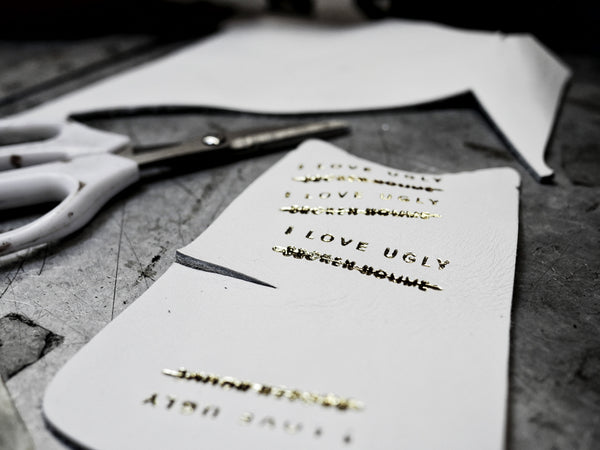 I LOVE UGLY
BROKEN HOMME
I LOVE UGLY
BROKEN HOMME
I LOVE UGLY
BROKEN HOMME
BROKEN HOMME
I LOVE UGLY